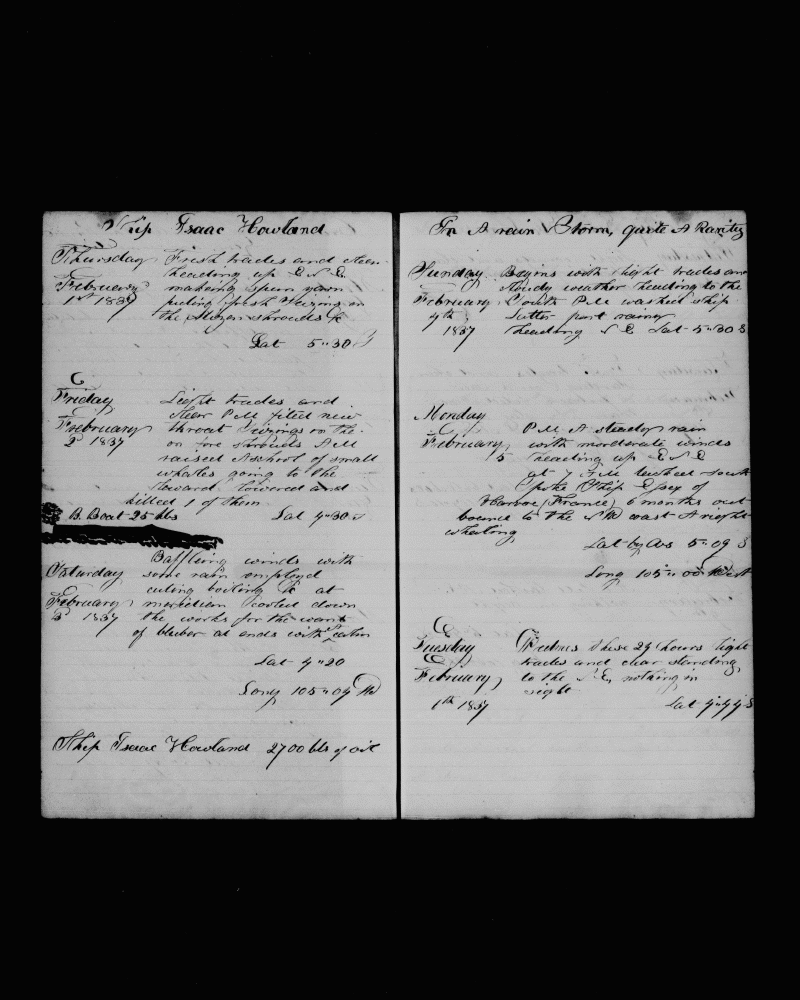 Ship Isaac Howland
Thursday Fresh trades and clear
heading up E N E
February making spun yarn
1st 1837 puting fresh seizings on
the Mizen shrouds &c
Lat 5"30 S
Friday Light trades and
clear P M fited new
February throat seizings on the
2d 1837 on fore shrouds A M
raised A school of small
whales going to the
leward lowered and
killed 1 of them
B. Boat 25 bbs Lat 4"30 S
Baffling winds with
Saturday some rain employd
cuting boiling &c at
February meridian cooled down
3d 1837 the works for the want
of bluber at ends with
Lat 4"20
Long 105"04 W
Ship Isaac Howland 2700 bls of oil
In A rain Storm, quite A Rarity
Sunday Begins with light trades and
study weather heading to the
February South P M washed ship
4th Latter part rainy
1837 heading S E Lat 5"30 S
Monday
P M A steady rain
February with morderate winds
5 heading up E N E
at 7 A M tacked South
spoke Ship of
Havroe (France) 6 months out
bound to the N W coast A right
whaling
Lat by Obs 5"09 S
Long 105"00 West
Tuesday these 24 hours light
trades and clear standing
February to the S E, nothing in
sight
1837 Lat S